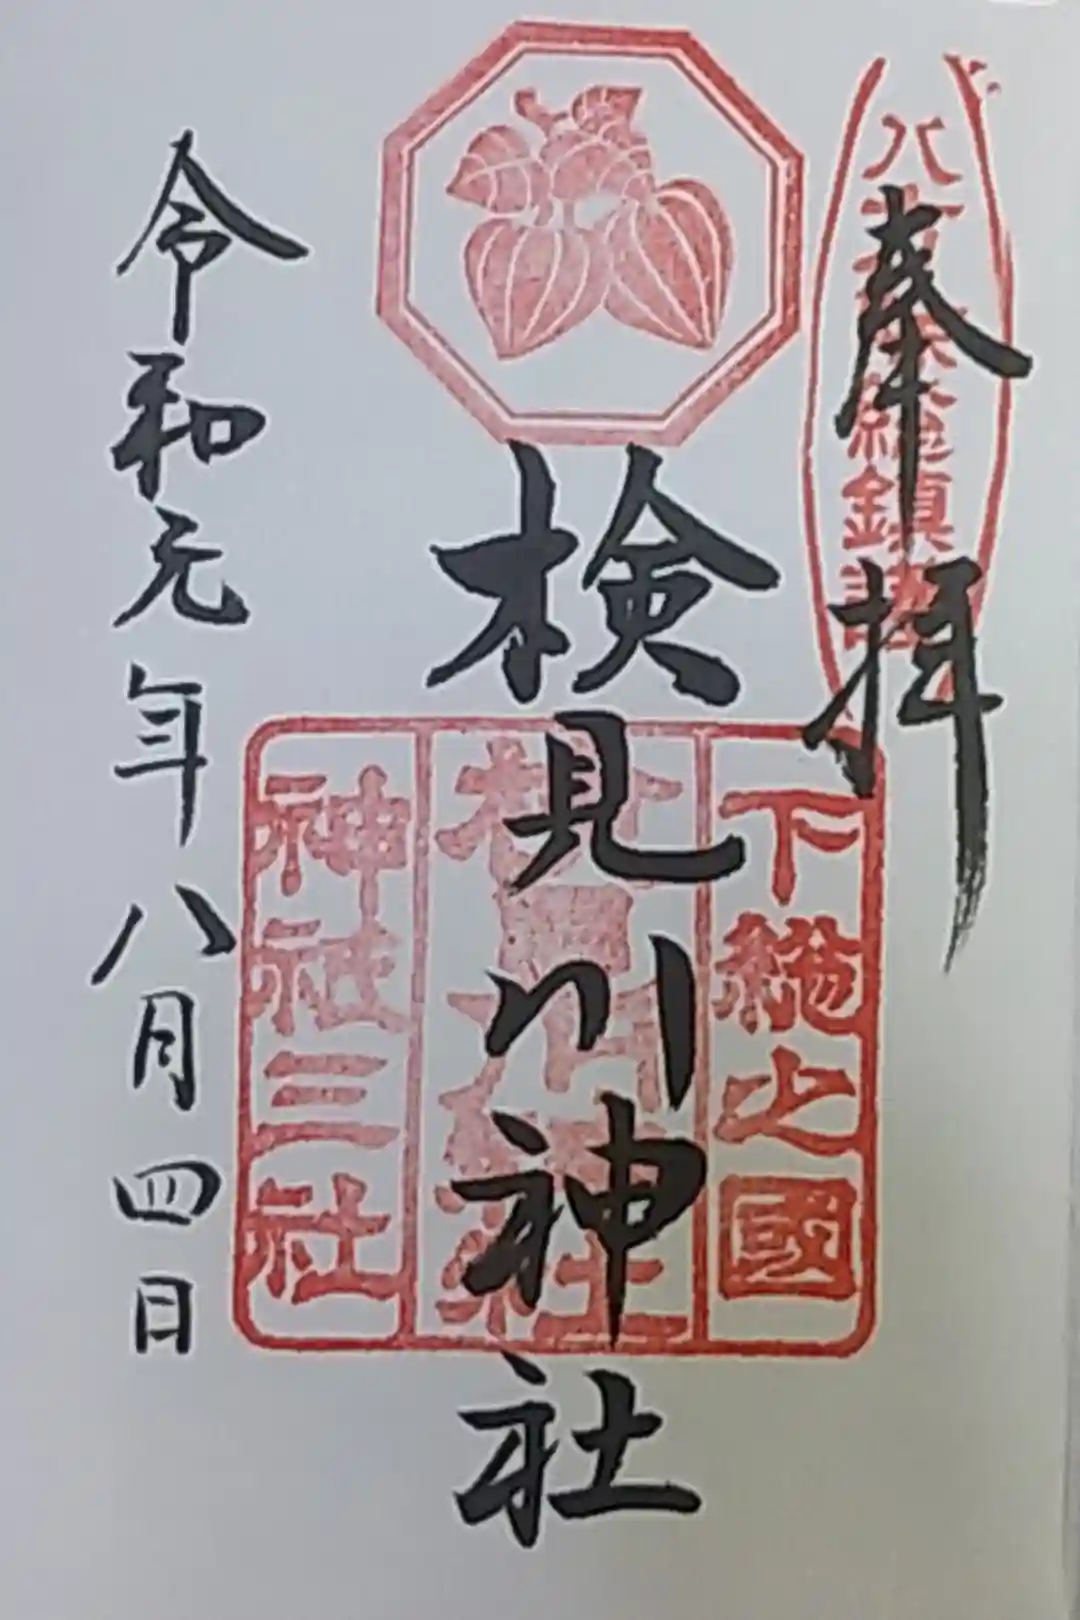 奉拝
八方除総鎮護
検見川神社
下総之國
検見川神社
神社三社
令和元年八月四日